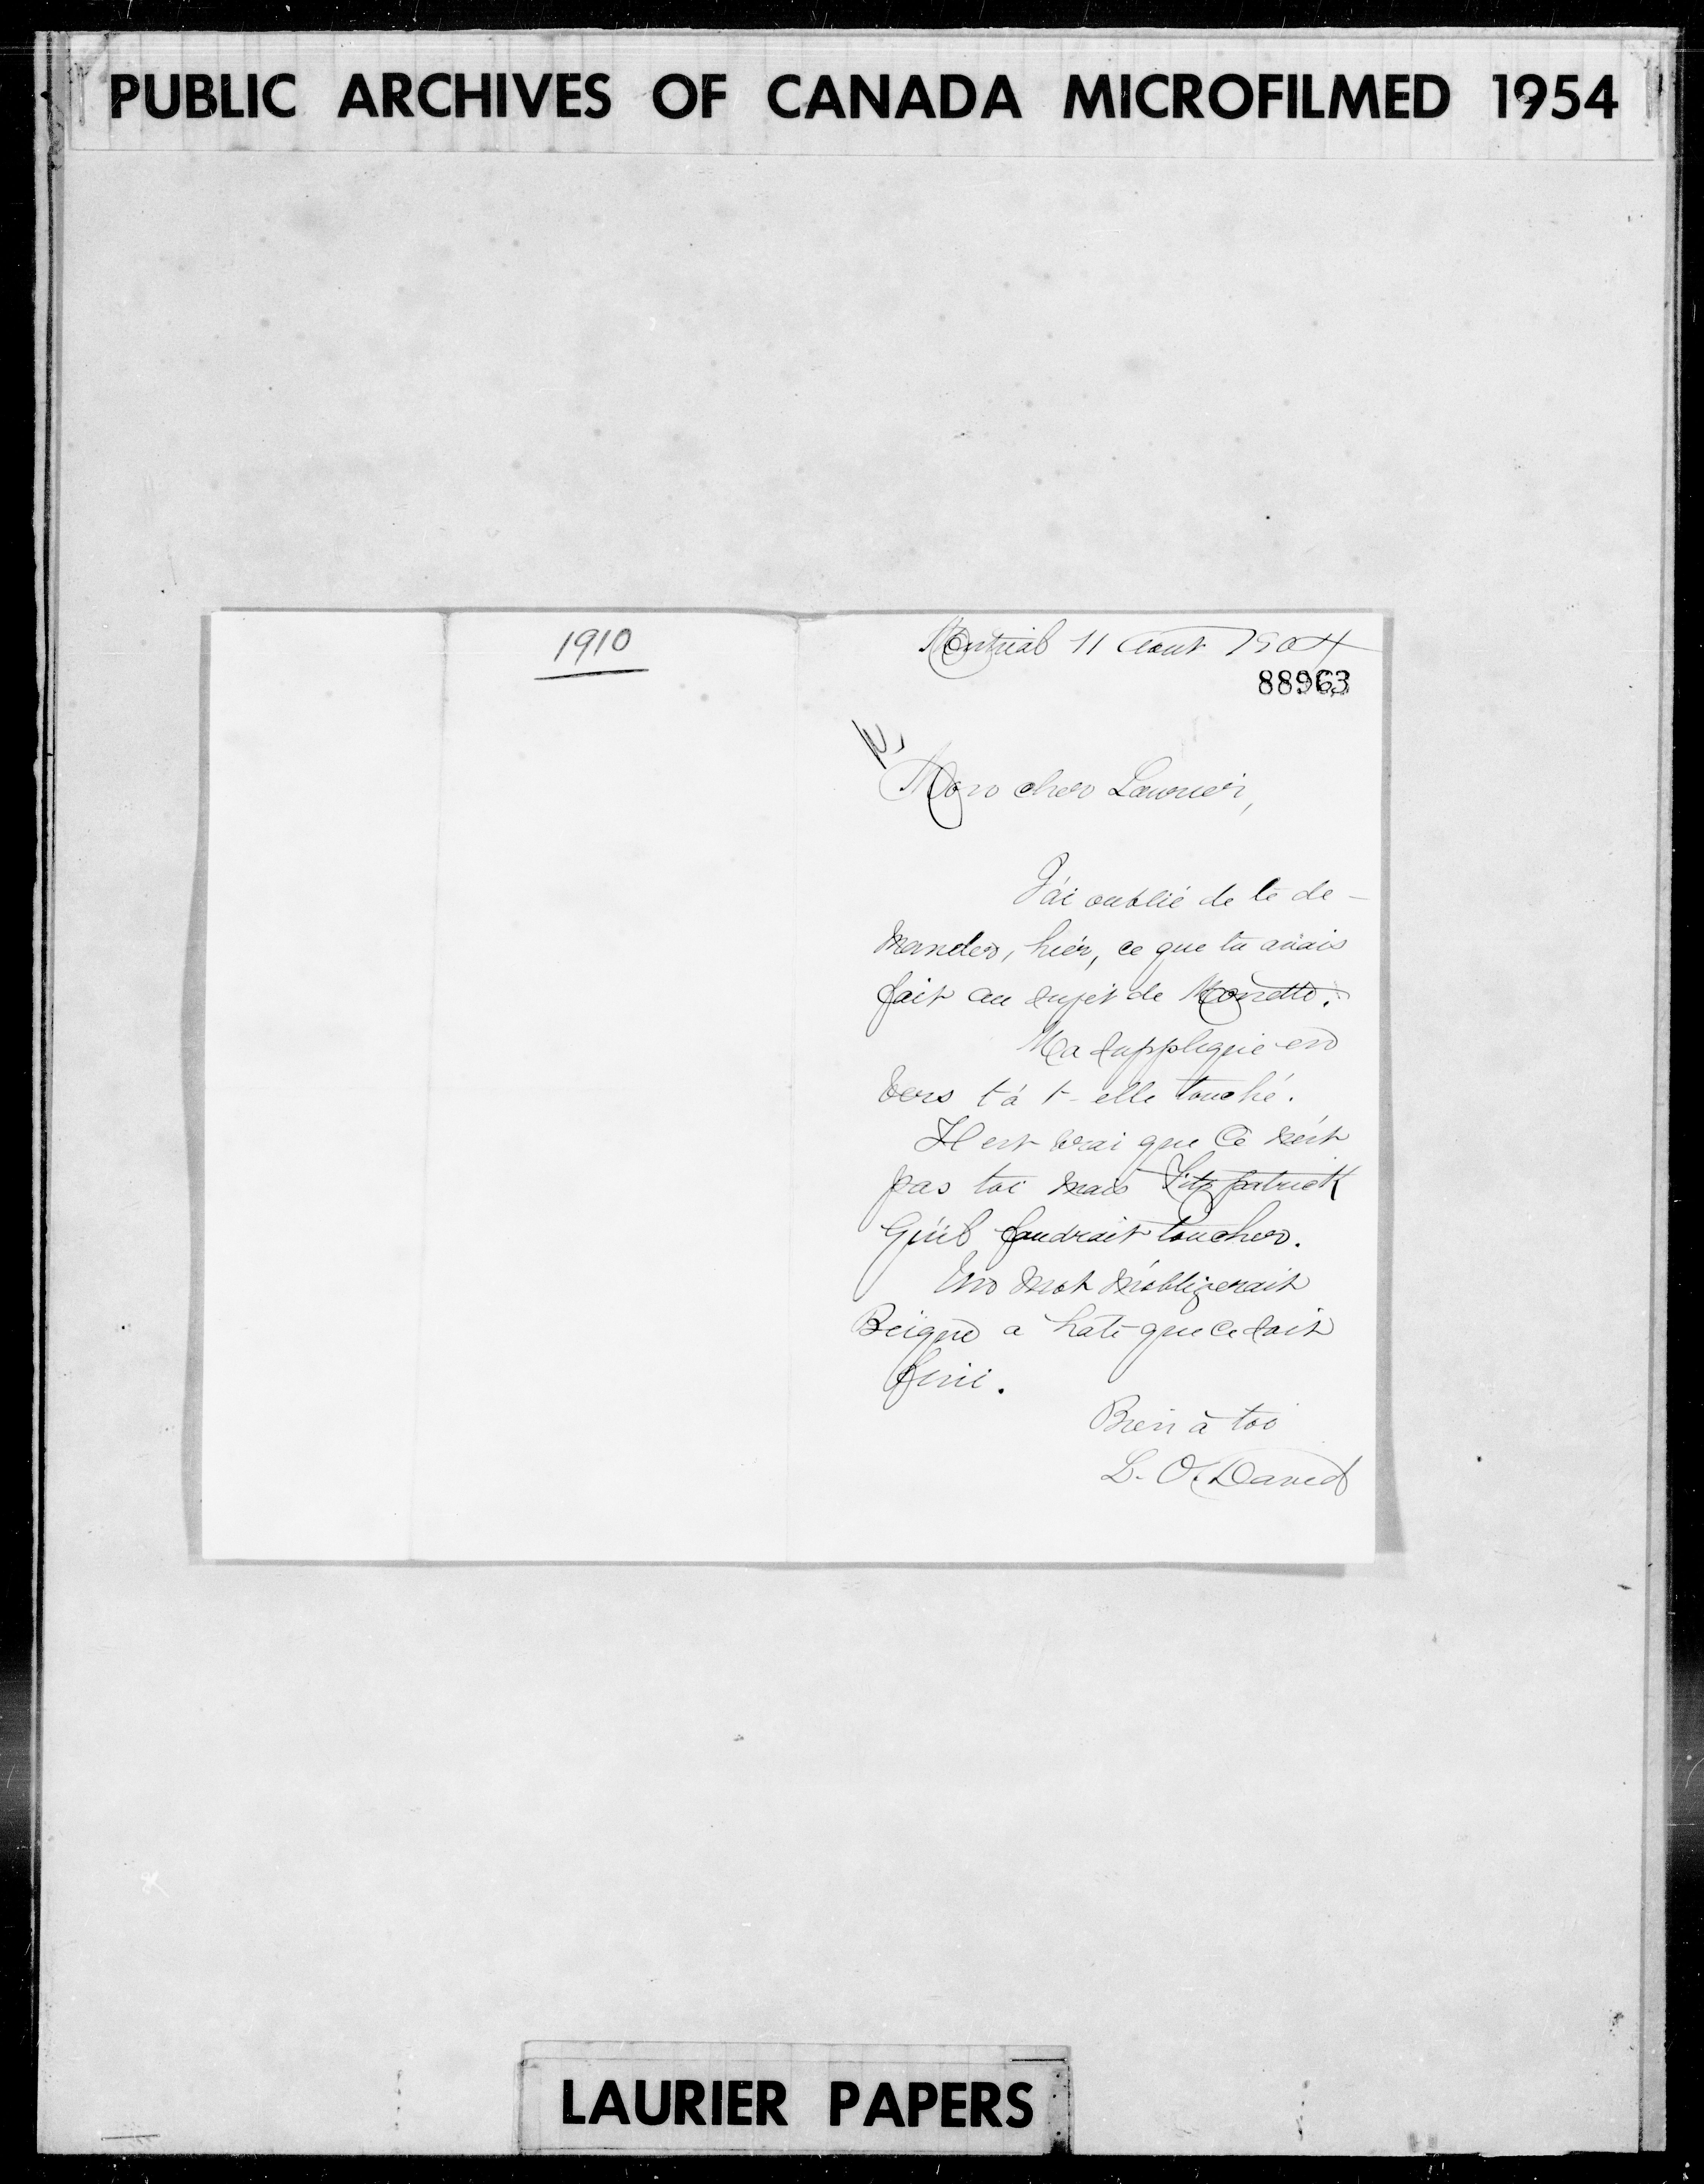 PUBLIC ARCHIVES OF CANADA MICROFILMED 1954
1910
Montréal 11 Aout 1904
88963
Mon cher Laurier,
J'ai oublié de te de-
mander, hier, ce que tu avais
fait au sujet de Monette.
Ma supplique en
vers t'a t-elle touché.
Il est vrai que ce n'est
pas toi mais Fitzpatrick
qu'il faudrait toucher.
Un mot m'obligerait
Beique a hâte que ce soit
fini.
Bien à toi
L. O. David
LAURIER PAPERS